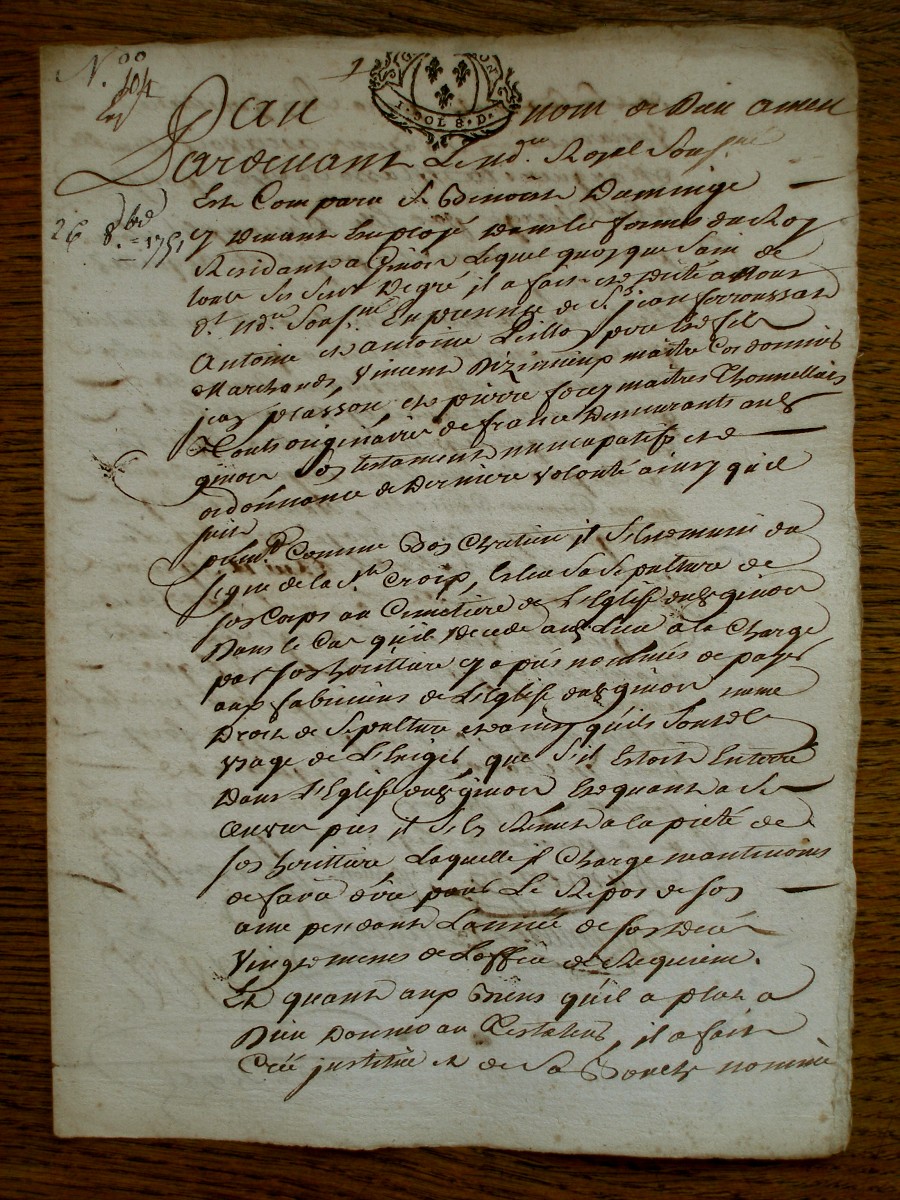 N.º 104
G
1. SOL 8. D.
Au nom de Dieu amen
Pardevant Le nd.re Royal Sous.né
Est Comparu Sr Benoist Daminige
26 8bre 1751
cy devant Employé dans les fermes du Roy
Residant a Givors Lequel quoyque Sain de
tous ses sens De gré il a fait et dicté a nous
dt. nd.re Sous.né En presence de Srs jean
Antoine et antoine pere et fils
Marchands, Vincent maitre Cordonnier
jean et pierre maitres Thonnelliers
Touts originaires de france Demeurants audt
givors Son testament nuncupatif et
ordonnance de Derniere volonté ainsy qu'il
suit
premt. Comme Bon Chretien il s'est muni du
signe de la Ste Croix, Eslu Sa Sepulture de
son Corps au Cimetiere de L'Eglise dudt givors
Dans le Cas qu'il Decede audt Lieu a la Charge
par son heritiere cy apres nommée de payer
aux fabriciens de L'Eglise dudt givors meme
Droit de Sepulture et ainsy qu'ils sont de
usage de L'Exiger que s'il Estoit Enterré
Dans L'Eglise dudt givors Et quant a Ses
œuvres pies il s'en Remet a la pieté de
son heritiere Laquelle il Charge neantmoins
de faire dire pour Le Repos de son
ame pendant L'année de son deces
Vingt messes de L'office de Requiem.
Et quant aux Biens qu'il a plut a
Dieu donner au Testateur, il a fait
Créé justitué et de Sa Bouche nommée